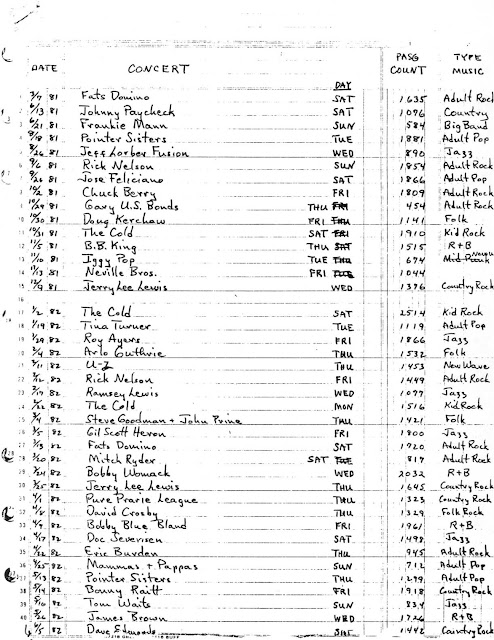 PASG TYPE
DATE CONCERT COUNT MUSIC
DAY
1 3/7 81 Fats Domino SAT 1635 Adult Rock
2 6/13 81 Johnny Paycheck SAT 1096 Country
3 6/21 81 Frankie Mann SUN 584 Big Band
4 8/18 81 Pointer Sisters TUE 1881 Adult Pop
5 8/26 81 Jeff Lorber Fusion WED 890 Jazz
6 9/6 81 Rick Nelson SUN 1854 Adult Rock
7 9/26 81 Jose Feliciano SAT 1866 Adult Pop
8 10/2 81 Chuck Berry FRI 1809 Adult Rock
9 10/29 81 Gary U.S. Bonds THU FRI 454 Adult Rock
10 10/30 81 Doug Kerchaw FRI THU 1141 Folk
11 10/31 81 The Cold SAT FRI 1910 Kid Rock
12 11/5 81 B.B. King THU SAT 1515 R+B
13 11/10 81 Iggy Pop TUE THU 674
14 11/13 81 Neville Bros. FRI TUE 1044
15 12/9 81 Jerry Lee Lewis WED 1376 Country Rock
16
17 1/2 82 The Cold SAT 2514 Kid Rock
18 1/19 82 Tina Turner TUE 1119 Adult Pop
19 1/29 82 Roy Ayers FRI 1866 Jazz
20 2/4 82 Arlo Guthrie THU 1532 Folk
21 2/11 82 U-2 THU 1453 New Wave
22 2/12 82 Rick Nelson FRI 1449 Adult Rock
23 2/17 82 Ramsey Lewis WED 1077 Jazz
24 2/22 82 The Cold MON 1516 Kid Rock
25 3/4 82 Steve Goodman + John Prine THU 1421 Folk
26 3/5 82 Gil Scott Heron FRI 1800 Jazz
27 3/13 82 Fats Domino SAT 1920 Adult Rock
28 3/20 82 Mitch Ryder SAT TUE 817 Adult Rock
29 3/24 82 Bobby Womack WED 2032 R+B
30 3/25 82 Jerry Lee Lewis THU 1645 Country Rock
31 4/1 82 Pure Prarie League THU 1323 Country Rock
32 4/8 82 David Crosby THU 1329 Folk Rock
33 4/9 82 Bobby Blue Bland FRI 1961 R+B
34 4/17 82 Doc Severisen SAT 1498 Jazz
35 4/22 82 Eric Burden THU 945 Adult Rock
36 4/25 82 Mammas + Pappas SUN 712 Adult Pop
37 5/13 82 Pointer Sisters THU 1299 Adult Pop
38 5/14 82 Bonny Raitt FRI 1918 Country Rock
39 82 Tom Waits SUN 834 Jazz
40 5/26 82 James Brown WED 1726 R+B
82 Dave Edmonds SAT 1442 Country Rock